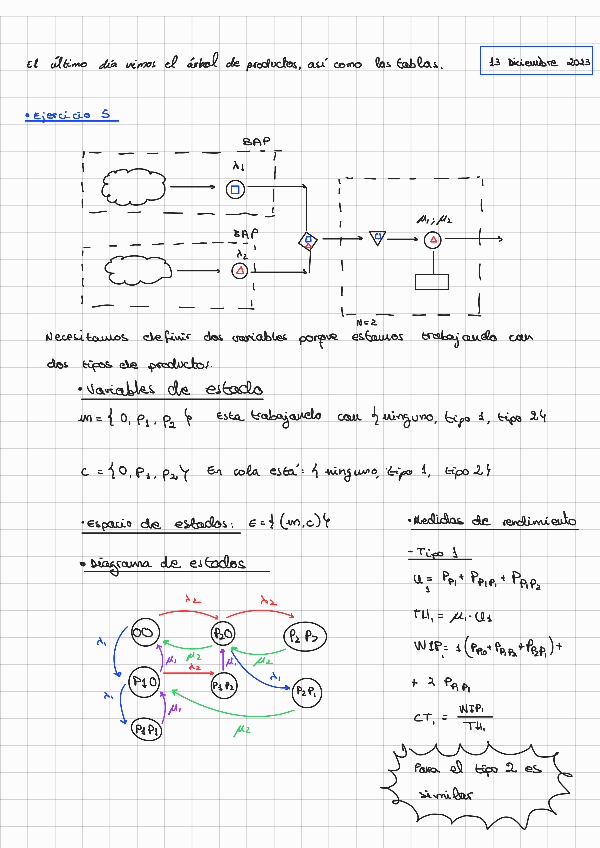 El último día vimos el árbol de productos, así como las tablas.
13 Diciembre 2023
• Ejercicio 5
BAP
λ1
BAP
λ2
μ1; μ2
N=2
Necesitamos definir dos variables porque estamos trabajando con
dos tipos de productos.
• Variables de estado
m = { 0, P1, P2 } Esta trabajando con { ninguno, tipo 1, tipo 2}
C = {0, P1, P2} En cola está: { ninguno, tipo 1, tipo 2}
• Espacio de estados: E = { (m,c) }
• Diagrama de estados
λ2 λ2
00 P20 P2 P2
λ1 μ1 μ2 μ1 μ2
λ2 λ1
P10 P1P2 P2P1
λ1 μ1 μ2
P1P1
• Medidas de rendimiento
- Tipo 1
U1 = PP1 + PP1P1 + PP1P2
TH1 = μ1 · U1
WIP1 = 1 (PP10 + PP1P2 + PP2P1) +
+ 2 PP1P1
CT1 = WIP1 / TH1
Para el tipo 2 es
similar